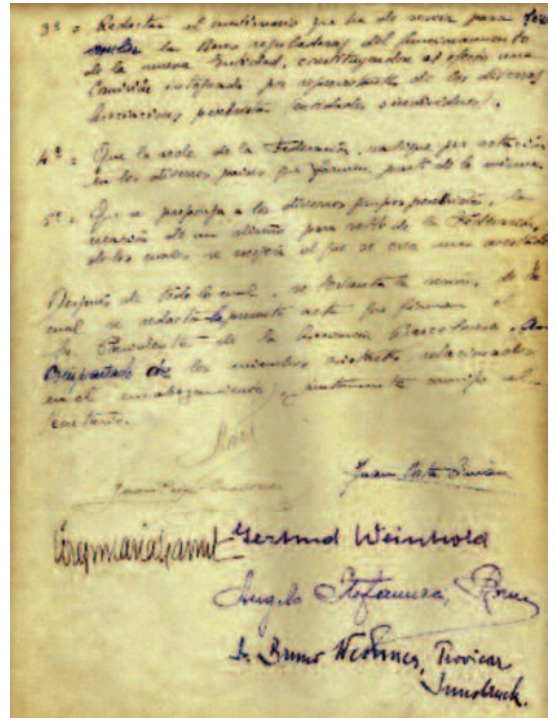 3º = Redactar el cuestionario que ha de servir para
la bases reguladoras del funcionamiento
de la nueva Entidad, constituyendose al efecto una
Comisión integrada por representantes de las diversas
Asociaciones pesebristas
4º = Que la sede de la Federación, radique por rotación
en los diversos paises que formen parte de la misma.
5º = Que se proponga a los diversos grupos pesebristas, la
creación de un diseño para sello de la Federación,
de los cuales se escojera el que se crea mas acertado
Después de todo lo cual, se levanta la reunión, de la
cual se redacta la presente acta que firman el
Sr. Presidente de la Asociación Barcelonesa,
los miembros relacionados
en el encabezamiento, juntamente conmigo el
Secretario.
Juan
Gertrud Weinhold
Angelo Stefanucci, Roma
Dr. Bruno Wechner, Provicar
Innsbruck.